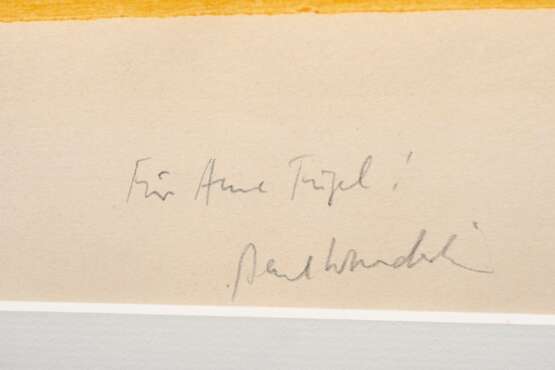 Für Arne Tügel!
Paul Wunderlich